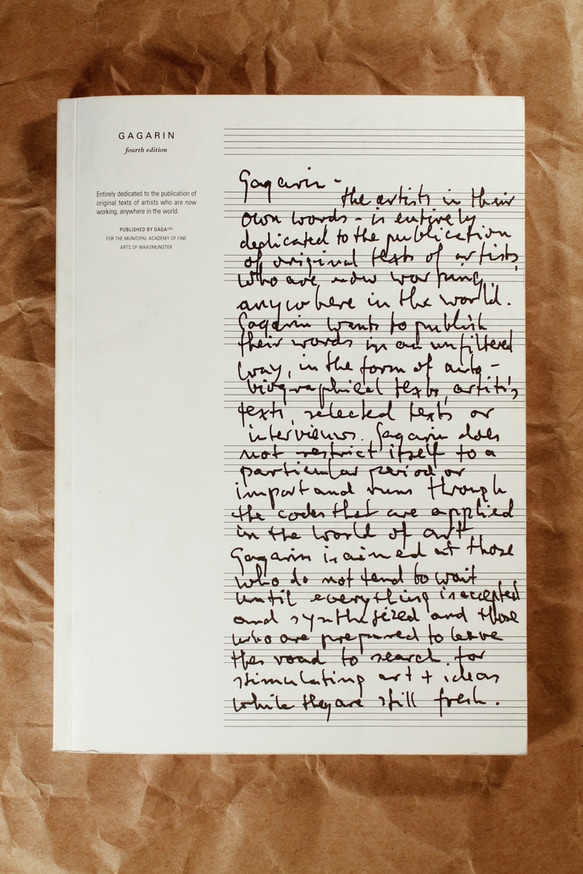 GAGARIN
fourth edition
Entirely dedicated to the publication of
original texts of artists who are now
working, anywhere in the world.
PUBLISHED BY GAGA
FOR THE MUNICIPAL ACADEMY OF FINE
ARTS OF WAASMUNSTER
Gagarin -
the artists in their
own words - is entirely
dedicated to the publication
of original texts of artists,
who are now working,
anywhere in the world.
Gagarin wants to publish
their words in an unfiltered
way, in the form of auto-
biographical texts, artists's
texts, selected texts or
interviews. Gagarin does
not restrict itself to a
particular period or
import and runs through
the codes that are applied
in the world of art
Gagarin is aimed at those
who do not tend to wait
until everything is accepted
and synthesized and those
who are prepared to leave
the road to search for
stimulating art + ideas
while they are still fresh.